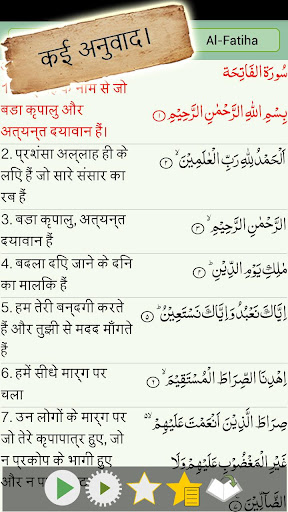 कई अनुवाद।
Al-Fatiha
के नाम से जो
बडा कृपालु और
अत्यन्त दयावान हैं।
سُورَة الفَاتِحَة
بِسْمِ اللّٰهِ الرَّحْمٰنِ الرَّحِيْمِ
2. प्रशंसा अल्लाह ही के
लिए हैं जो सारे संसार का
रब हैं
اَلْحَمْدُ لِلّٰهِ رَبِّ الْعٰلَمِيْنَ ۙ ﴿٢﴾
3. बडा कृपालु, अत्यन्त
दयावान हैं
الرَّحْمٰنِ الرَّحِيْمِ ۙ ﴿٣﴾
4. बदला दिए जाने के दिन
का मालिक हैं
مٰلِكِ يَوْمِ الدِّيْنِ ؕ ﴿٤﴾
5. हम तेरी बन्दगी करते
हैं और तुझी से मदद माँगते
हैं
اِيَّاكَ نَعْبُدُ وَاِيَّاكَ نَسْتَعِيْنُ ؕ ﴿٥﴾
6. हमें सीधे मार्ग पर
चला
اِهْدِنَا الصِّرَاطَ الْمُسْتَقِيْمَ ۙ ﴿٦﴾
7. उन लोगों के मार्ग पर
जो तेरे कृपापात्र हुए, जो
न प्रकोप के भागी हुए
और न
صِرَاطَ الَّذِيْنَ اَنْعَمْتَ عَلَيْهِمْ ۙ
غَيْرِ الْمَغْضُوْبِ عَلَيْهِمْ وَلَا
الضَّآلِّيْنَ